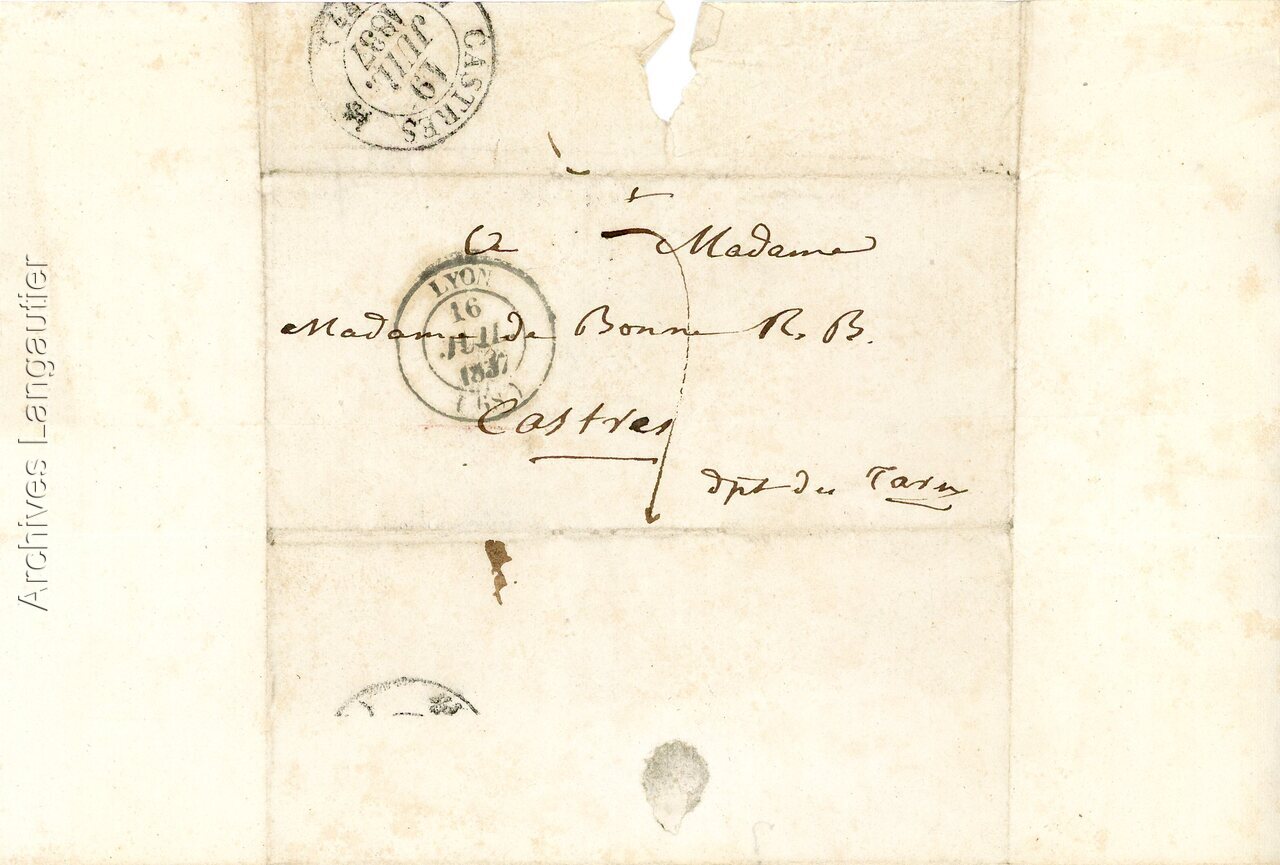 CASTRES
19
JUIL.
1837
a Madame
Madame de Bonne R. B.
Castres
dpt du Tarn
LYON
16
JUIL
1837
(68)
Archives Langautier